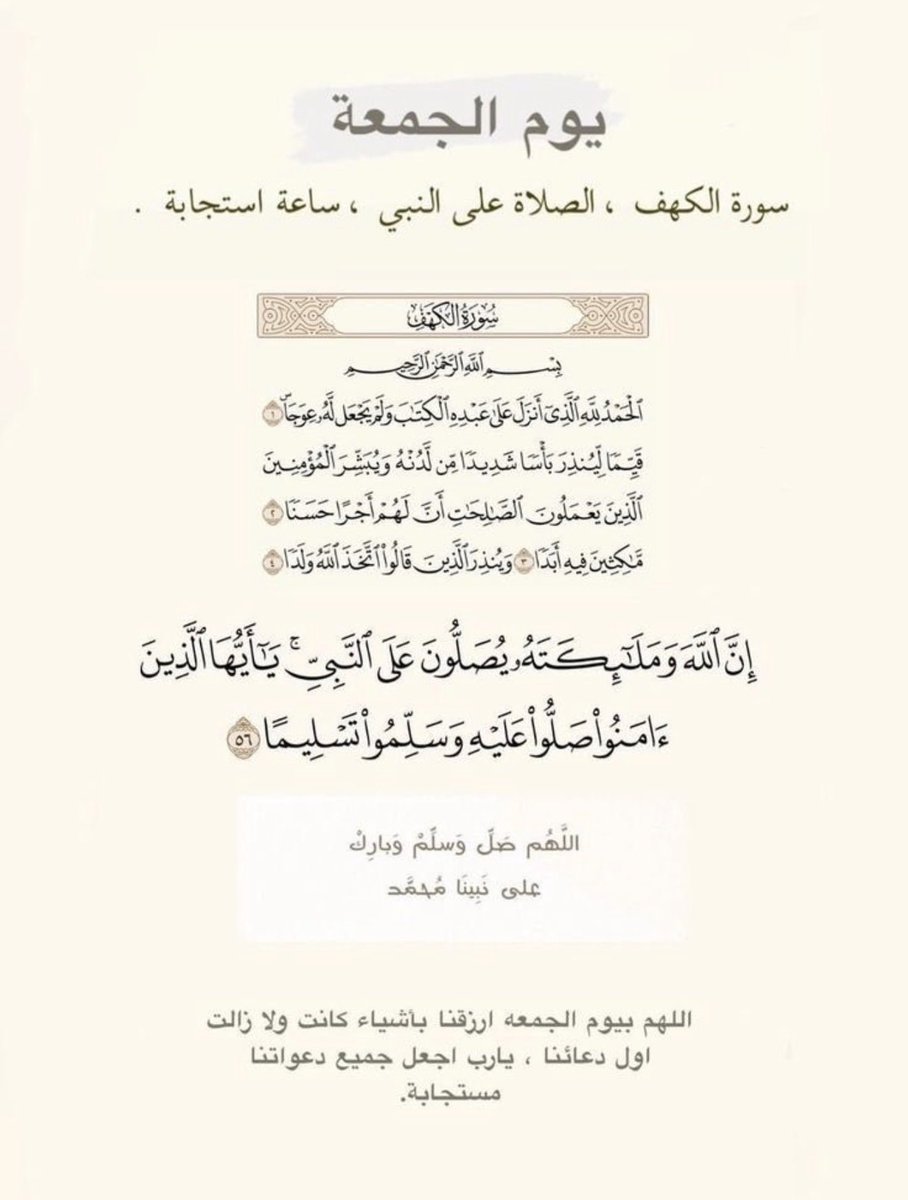 يوم الجمعة
سورة الكهف ، الصلاة على النبي ، ساعة استجابة .
سُورَةُ الكَهْفِ
بِسْمِ ٱللَّهِ ٱلرَّحْمَٰنِ ٱلرَّحِيمِ
ٱلْحَمْدُ لِلَّهِ ٱلَّذِىٓ أَنزَلَ عَلَىٰ عَبْدِهِ ٱلْكِتَٰبَ وَلَمْ يَجْعَل لَّهُۥ عِوَجَاۜ ١
قَيِّمٗا لِّيُنذِرَ بَأْسٗا شَدِيدٗا مِّن لَّدُنْهُ وَيُبَشِّرَ ٱلْمُؤْمِنِينَ
ٱلَّذِينَ يَعْمَلُونَ ٱلصَّٰلِحَٰتِ أَنَّ لَهُمْ أَجْرًا حَسَنٗا ٢
مَّٰكِثِينَ فِيهِ أَبَدٗا ٣ وَيُنذِرَ ٱلَّذِينَ قَالُوا۟ ٱتَّخَذَ ٱللَّهُ وَلَدٗا ٤
إِنَّ ٱللَّهَ وَمَلَٰٓئِكَتَهُۥ يُصَلُّونَ عَلَى ٱلنَّبِىِّۚ يَٰٓأَيُّهَا ٱلَّذِينَ
ءَامَنُوا۟ صَلُّوا۟ عَلَيْهِ وَسَلِّمُوا۟ تَسْلِيمًا ٥٦
اللَّهُم صَلِّ وَسلِّمْ وَبارِكْ
على نَبِينَا مُحمَّد
اللهم بيوم الجمعه ارزقنا بأشياء كانت ولا زالت
اول دعائنا ، يارب اجعل جميع دعواتنا
مستجابة.